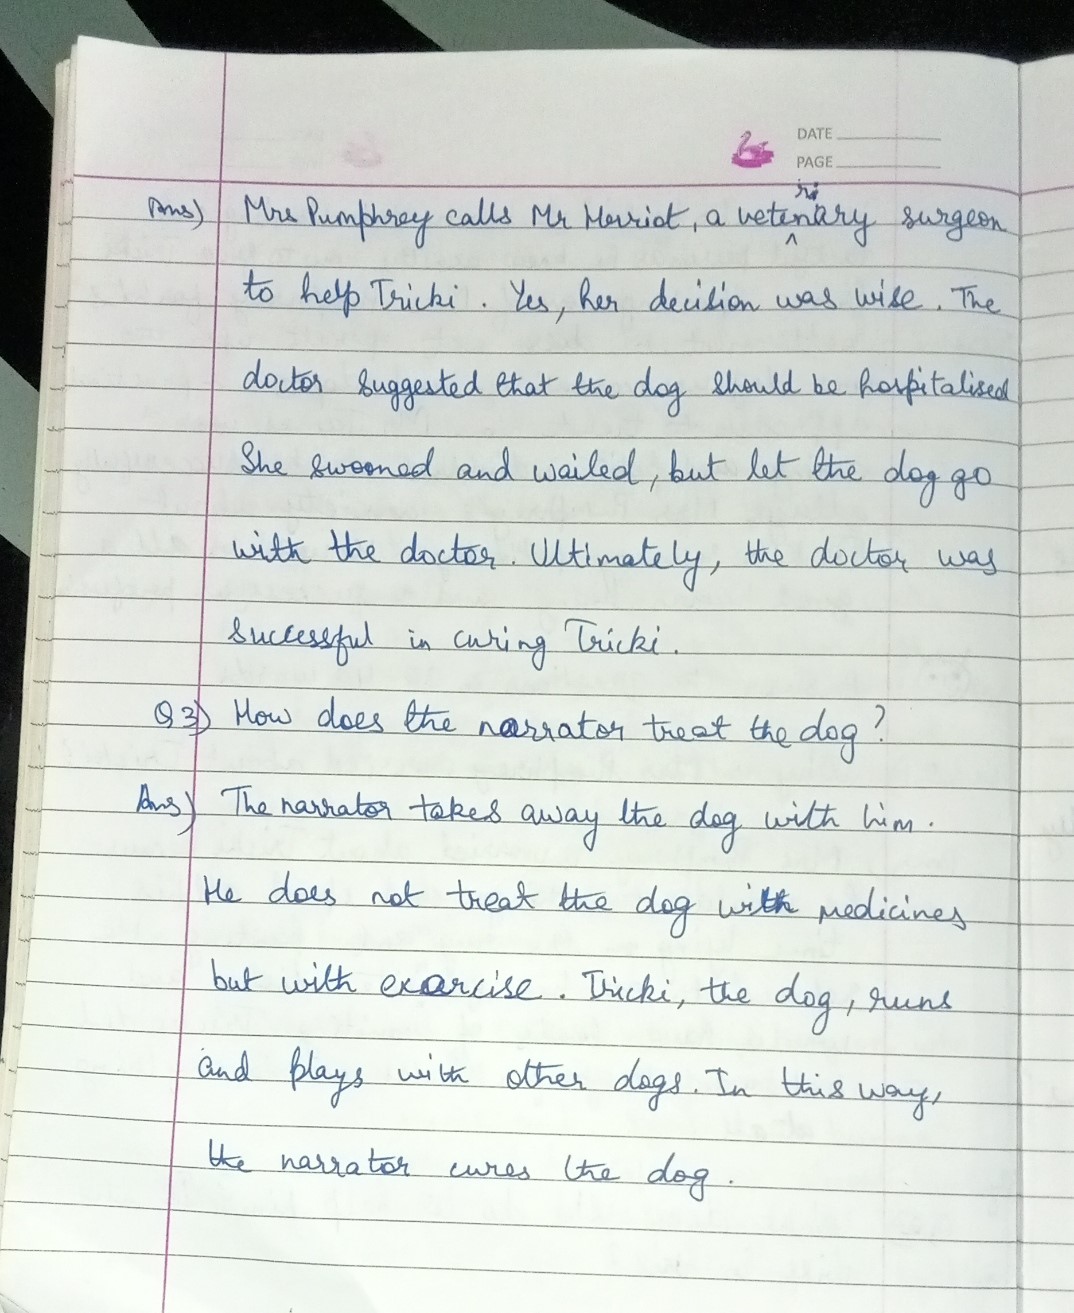 DATE
PAGE
Ans) Mrs Pumphrey calls Mr Herriot, a veterinary surgeon
to help Tricki. Yes, her decision was wise. The
doctor suggested that the dog should be hospitalised
She swooned and wailed, but let the dog go
with the doctor. Ultimately, the doctor was
successful in curing Tricki.
Q3) How does the narrator treat the dog?
Ans) The narrator takes away the dog with him.
He does not treat the dog with medicines
but with exercise. Tricki, the dog, runs
and plays with other dogs. In this way,
the narrator cures the dog.